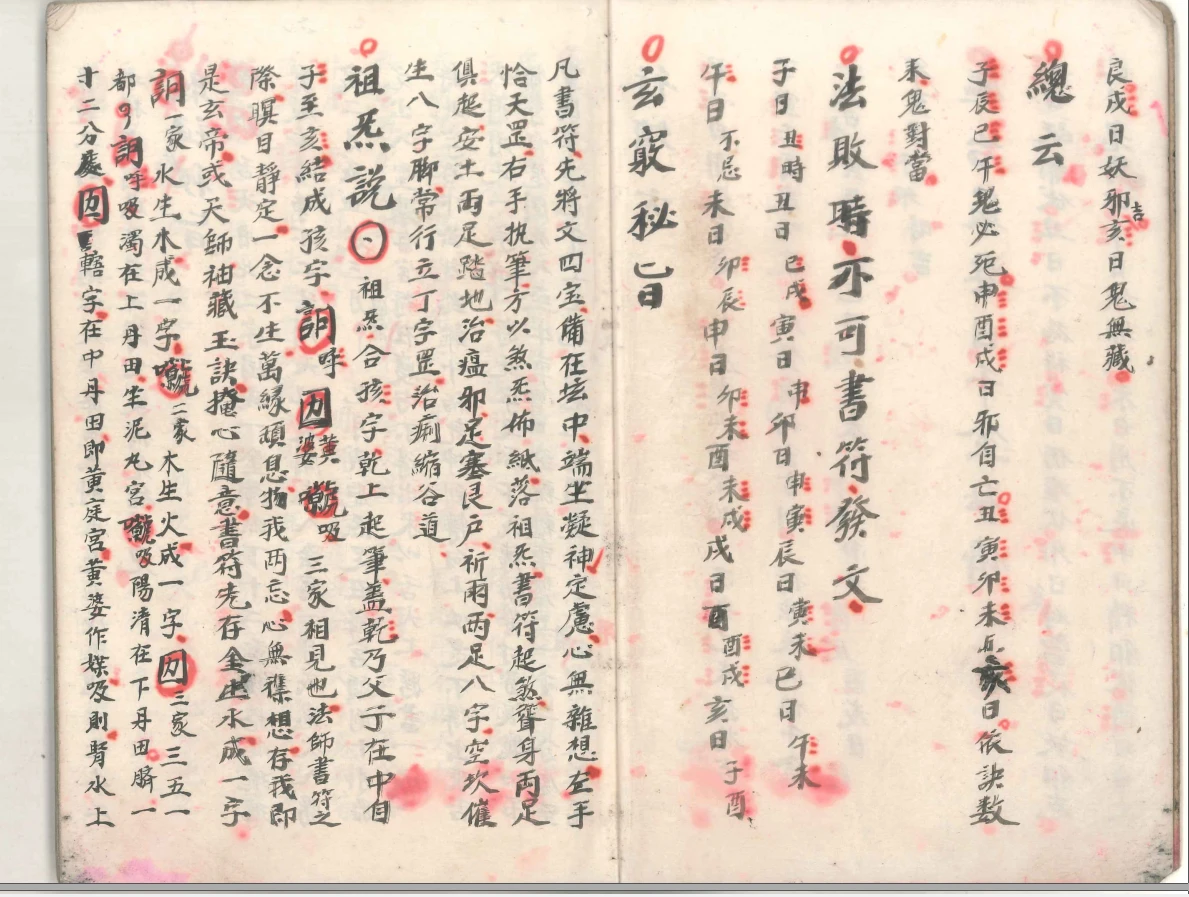 良戌日妖邪亥吉日鬼無藏
總云
子辰巳午鬼必死申酉戌日邪自亡丑寅卯未亥日依訣数
未鬼對當
法敗時亦可書符發文
子日丑時丑日巳戌寅日申卯日申寅辰日寅未巳日午未
午日不忌未日卯辰申日卯未酉未戌戌日酉酉戌亥日子酉
玄竅秘旨
凡書符先將文四宝備在坛中端坐凝神定慮心無雜想左手
恰天罡右手执筆方以煞炁佈紙落祖炁書符起煞聳身两足
俱起安土两足踏地治瘟邪足塞艮户祈雨两足八字空坎催
生八字脚常行立丁字罡治痢縮谷道
祖炁説 祖炁合孩字乾上起筆盖乾乃父子在中自
子至亥結成孩字 訶呼 㘞 黃婆 㘈吸 三家相見也法師書符之
際瞑目靜定一念不生萬緣頓息物我两忘心無襍想存我即
是玄帝或天師袖藏玉訣攄心隨意書符先存金生水成一字
訶一家水生木成一字 二家木生火成一字 㘞三家三五一
都 訶呼吸濁在上丹田坐泥丸宮 吸陽清在下丹田臍一
十二分處 㘞 轄字在中丹田即黄庭宮黄婆作媒吸則腎水上